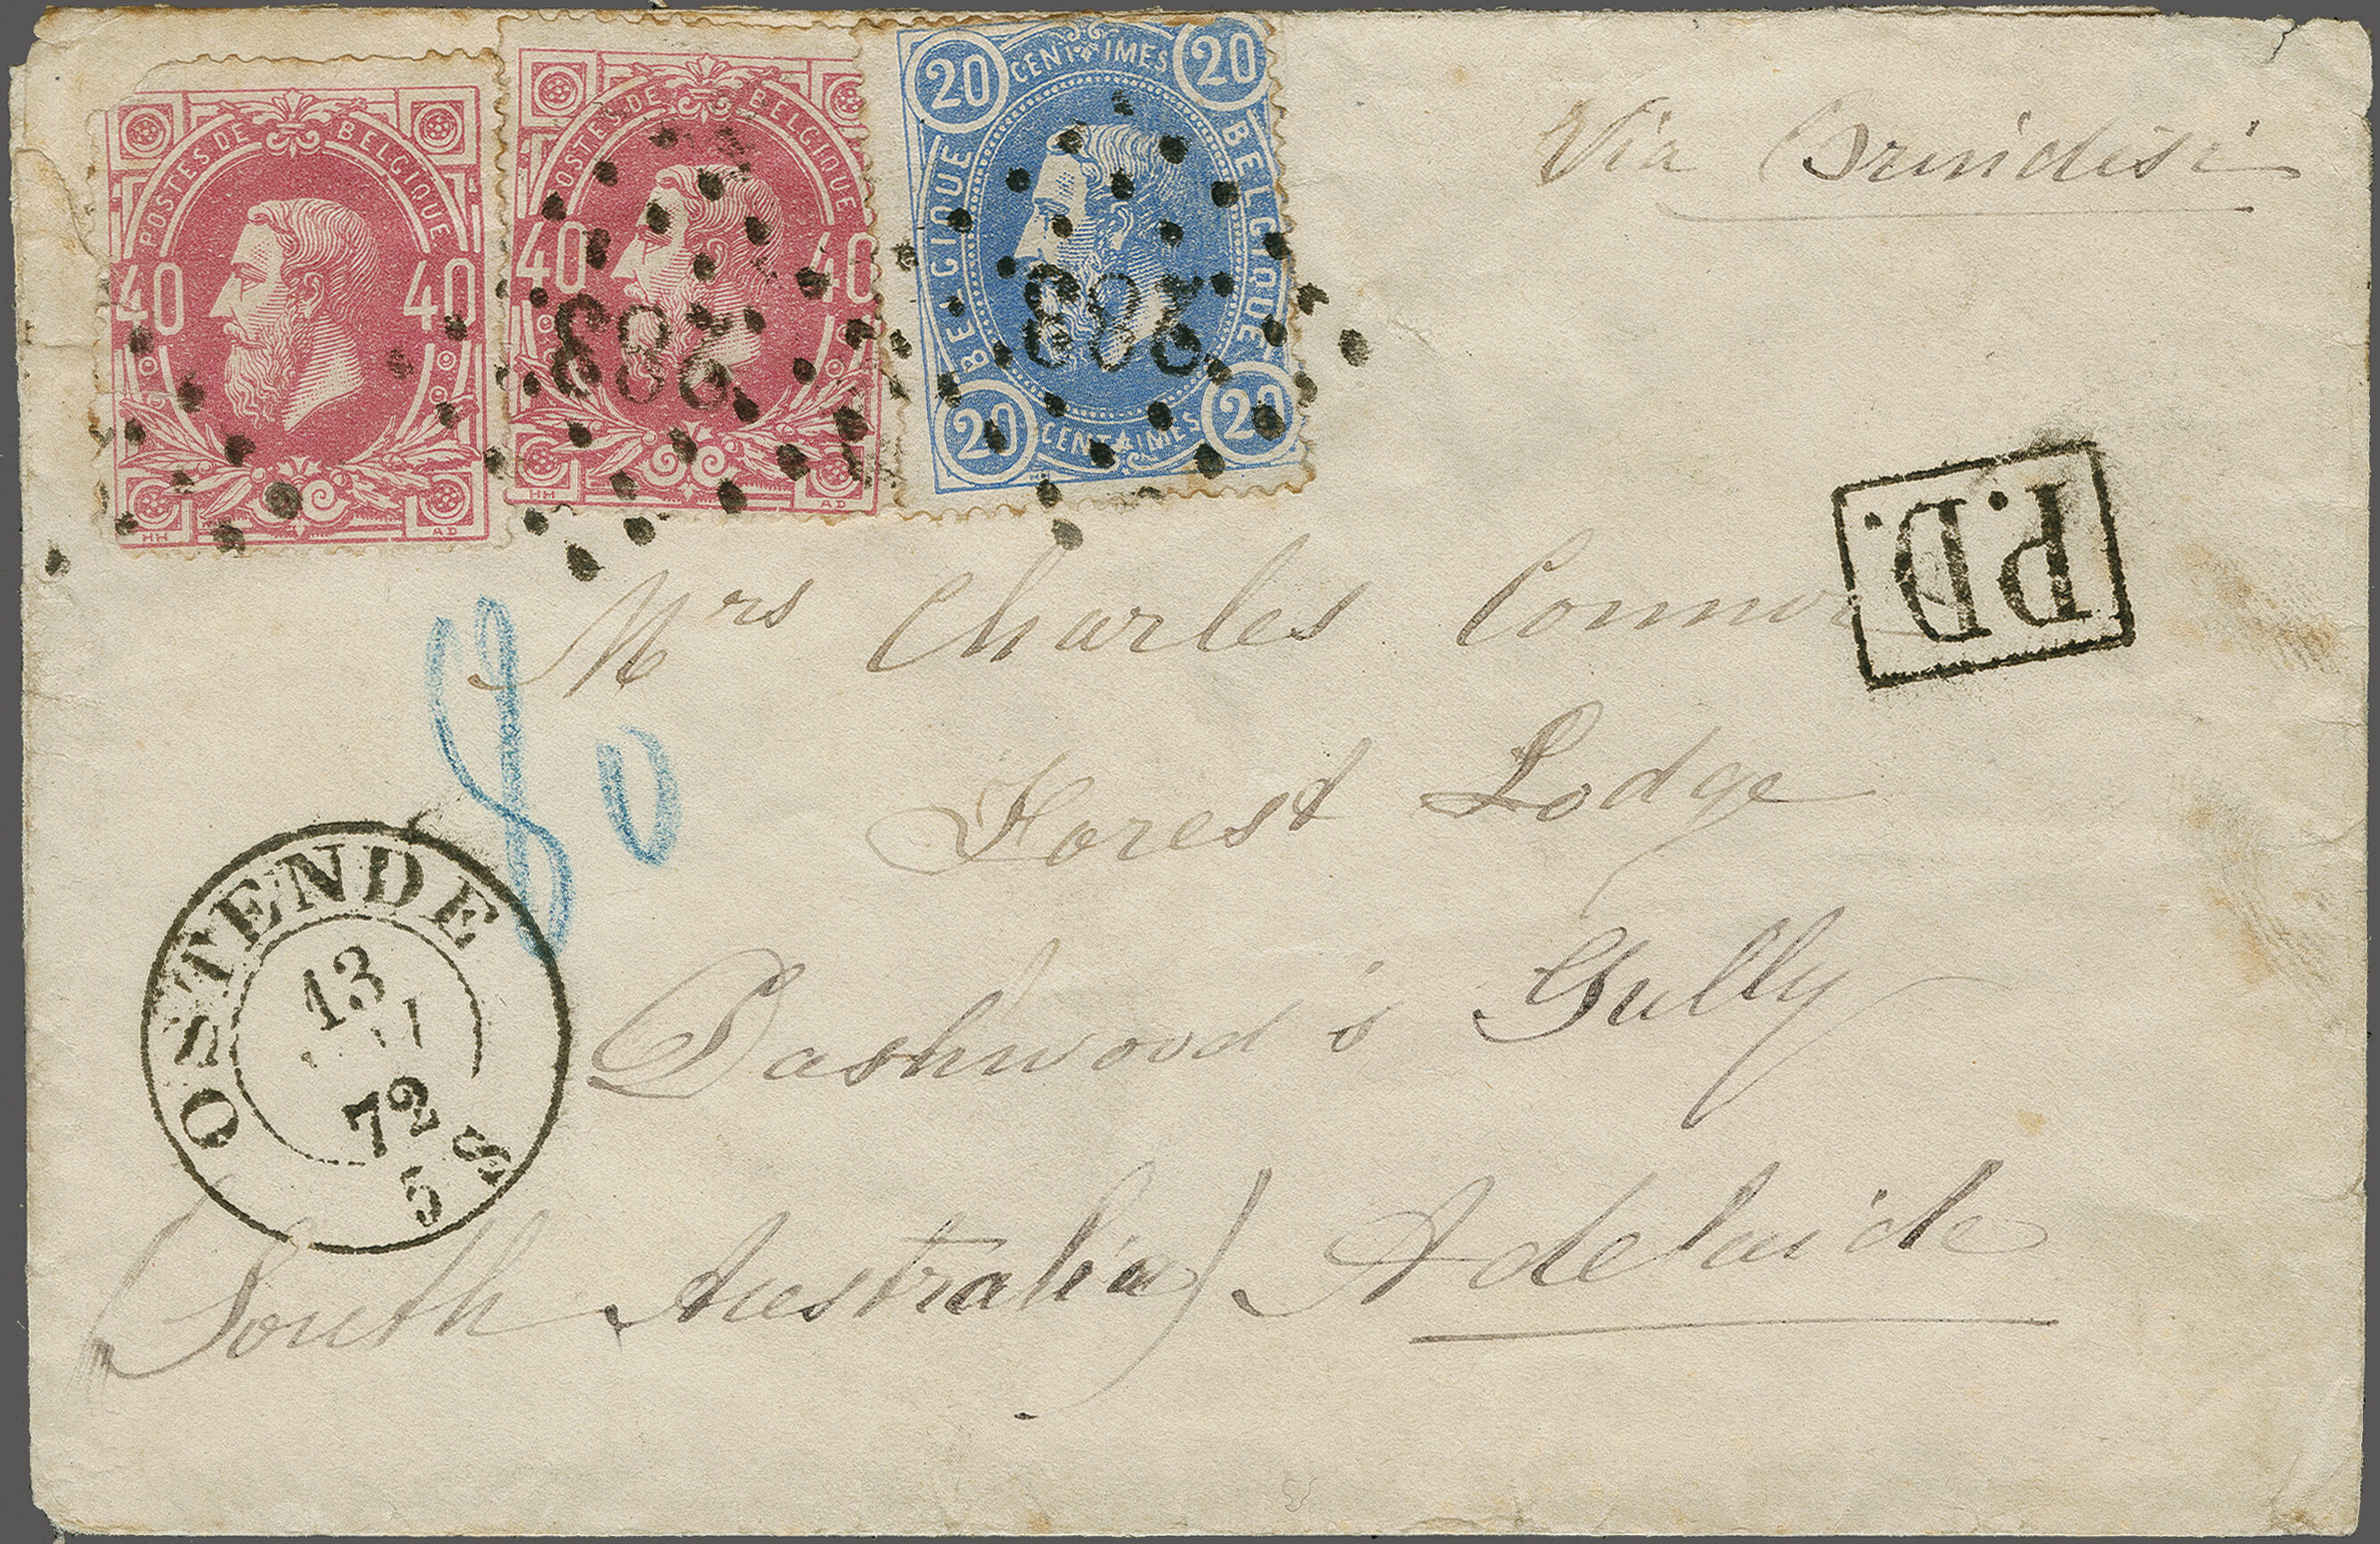 POSTES DE BELGIQUE
40 40
HH AD
POSTES DE BELGIQUE
40 40
HH AD
20 CENTIMES 20
BELGIQUE BELGIQUE
20 CENTIMES 20
283
203
Via Brindisi
P.D.
Mrs Charles Connor
80
Forest Lodge
Dashwood's Gully
(South Australia) Adelaide
OSTENDE
13
72
5 S